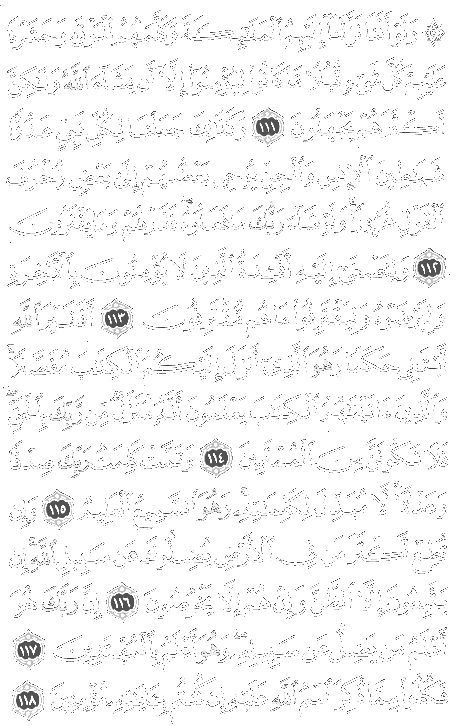 ۞ وَلَوْ أَنَّنَا نَزَّلْنَآ إِلَيْهِمُ ٱلْمَلَٰٓئِكَةَ وَكَلَّمَهُمُ ٱلْمَوْتَىٰ وَحَشَرْنَا
عَلَيْهِمْ كُلَّ شَىْءٍ قُبُلًا مَّا كَانُوا۟ لِيُؤْمِنُوٓا۟ إِلَّآ أَن يَشَآءَ ٱللَّهُ وَلَٰكِنَّ
أَكْثَرَهُمْ يَجْهَلُونَ ١١١ وَكَذَٰلِكَ جَعَلْنَا لِكُلِّ نَبِىٍّ عَدُوًّا
شَيَٰطِينَ ٱلْإِنسِ وَٱلْجِنِّ يُوحِى بَعْضُهُمْ إِلَىٰ بَعْضٍ زُخْرُفَ
ٱلْقَوْلِ غُرُورًا ۚ وَلَوْ شَآءَ رَبُّكَ مَا فَعَلُوهُ ۖ فَذَرْهُمْ وَمَا يَفْتَرُونَ
١١٢ وَلِتَصْغَىٰٓ إِلَيْهِ أَفْـِٔدَةُ ٱلَّذِينَ لَا يُؤْمِنُونَ بِٱلْـَٔاخِرَةِ
وَلِيَرْضَوْهُ وَلِيَقْتَرِفُوا۟ مَا هُم مُّقْتَرِفُونَ ١١٣ أَفَغَيْرَ ٱللَّهِ
أَبْتَغِى حَكَمًا وَهُوَ ٱلَّذِىٓ أَنزَلَ إِلَيْكُمُ ٱلْكِتَٰبَ مُفَصَّلًا ۚ
وَٱلَّذِينَ ءَاتَيْنَٰهُمُ ٱلْكِتَٰبَ يَعْلَمُونَ أَنَّهُۥ مُنَزَّلٌ مِّن رَّبِّكَ بِٱلْحَقِّ ۖ
فَلَا تَكُونَنَّ مِنَ ٱلْمُمْتَرِينَ ١١٤ وَتَمَّتْ كَلِمَتُ رَبِّكَ صِدْقًا
وَعَدْلًا ۚ لَّا مُبَدِّلَ لِكَلِمَٰتِهِۦ ۚ وَهُوَ ٱلسَّمِيعُ ٱلْعَلِيمُ ١١٥ وَإِن
تُطِعْ أَكْثَرَ مَن فِى ٱلْأَرْضِ يُضِلُّوكَ عَن سَبِيلِ ٱللَّهِ ۚ إِن
يَتَّبِعُونَ إِلَّا ٱلظَّنَّ وَإِنْ هُمْ إِلَّا يَخْرُصُونَ ١١٦ إِنَّ رَبَّكَ هُوَ
أَعْلَمُ مَن يَضِلُّ عَن سَبِيلِهِۦ ۖ وَهُوَ أَعْلَمُ بِٱلْمُهْتَدِينَ ١١٧
فَكُلُوا۟ مِمَّا ذُكِرَ ٱسْمُ ٱللَّهِ عَلَيْهِ إِن كُنتُم بِـَٔايَٰتِهِۦ مُؤْمِنِينَ ١١٨